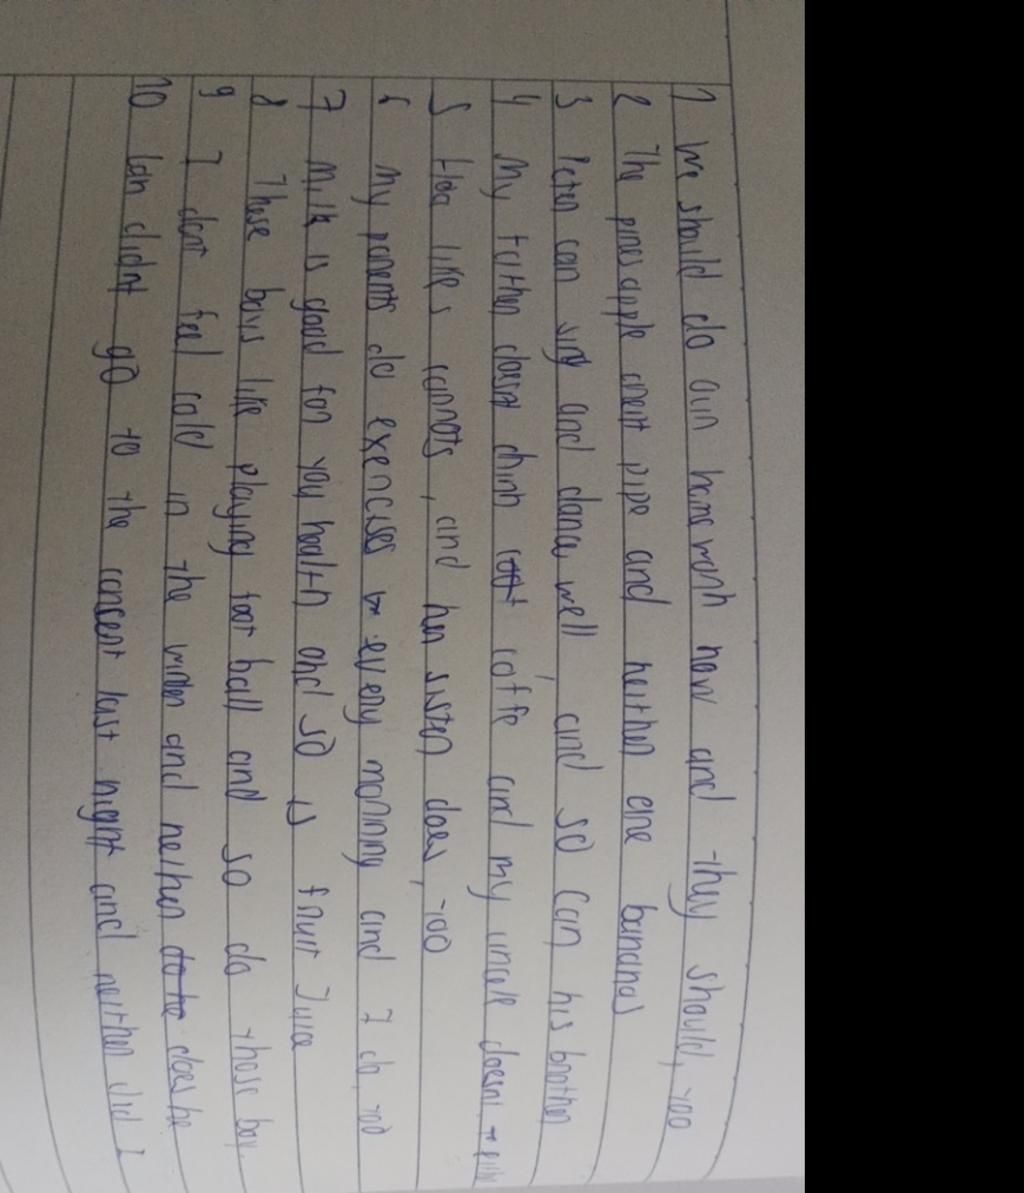 1 We should do our homework now and they should, too
2 The pinesapple arent pipe and neither are bananas
3 Peter can sing and dance well, and so can his brother
4 My father doesnt drink coffe and my uncele doesnt
5 Hoa likes carrots, and her sister does, too
6 My parents do exencises every morning and I do, too
7 Milk is good for you health and so is fruit Juice
8 These boys like playing foot ball and so do those boy
9 I dont feel cold in the winter and neither does he
10 Lan didnt go to the concert last night and neither did I